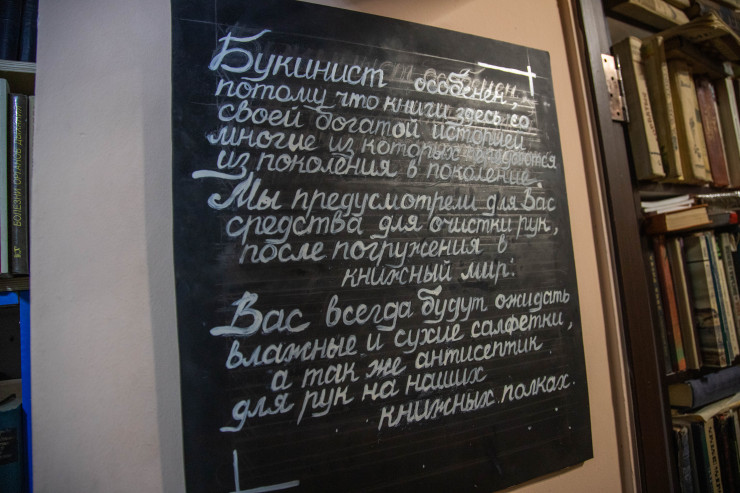 Букинист особенен,
потому что книги здесь со
своей богатой историей
многие из которых передаются
из поколения в поколение.
Мы предусмотрели для Вас
средства для очистки рук,
после погружения в
книжный мир.
Вас всегда будут ожидать
влажные и сухие салфетки,
а так же антисептик
для рук на наших
книжных полках.
БОЛЕЗНИ ОРГАНОВ ДЫХАНИЯ